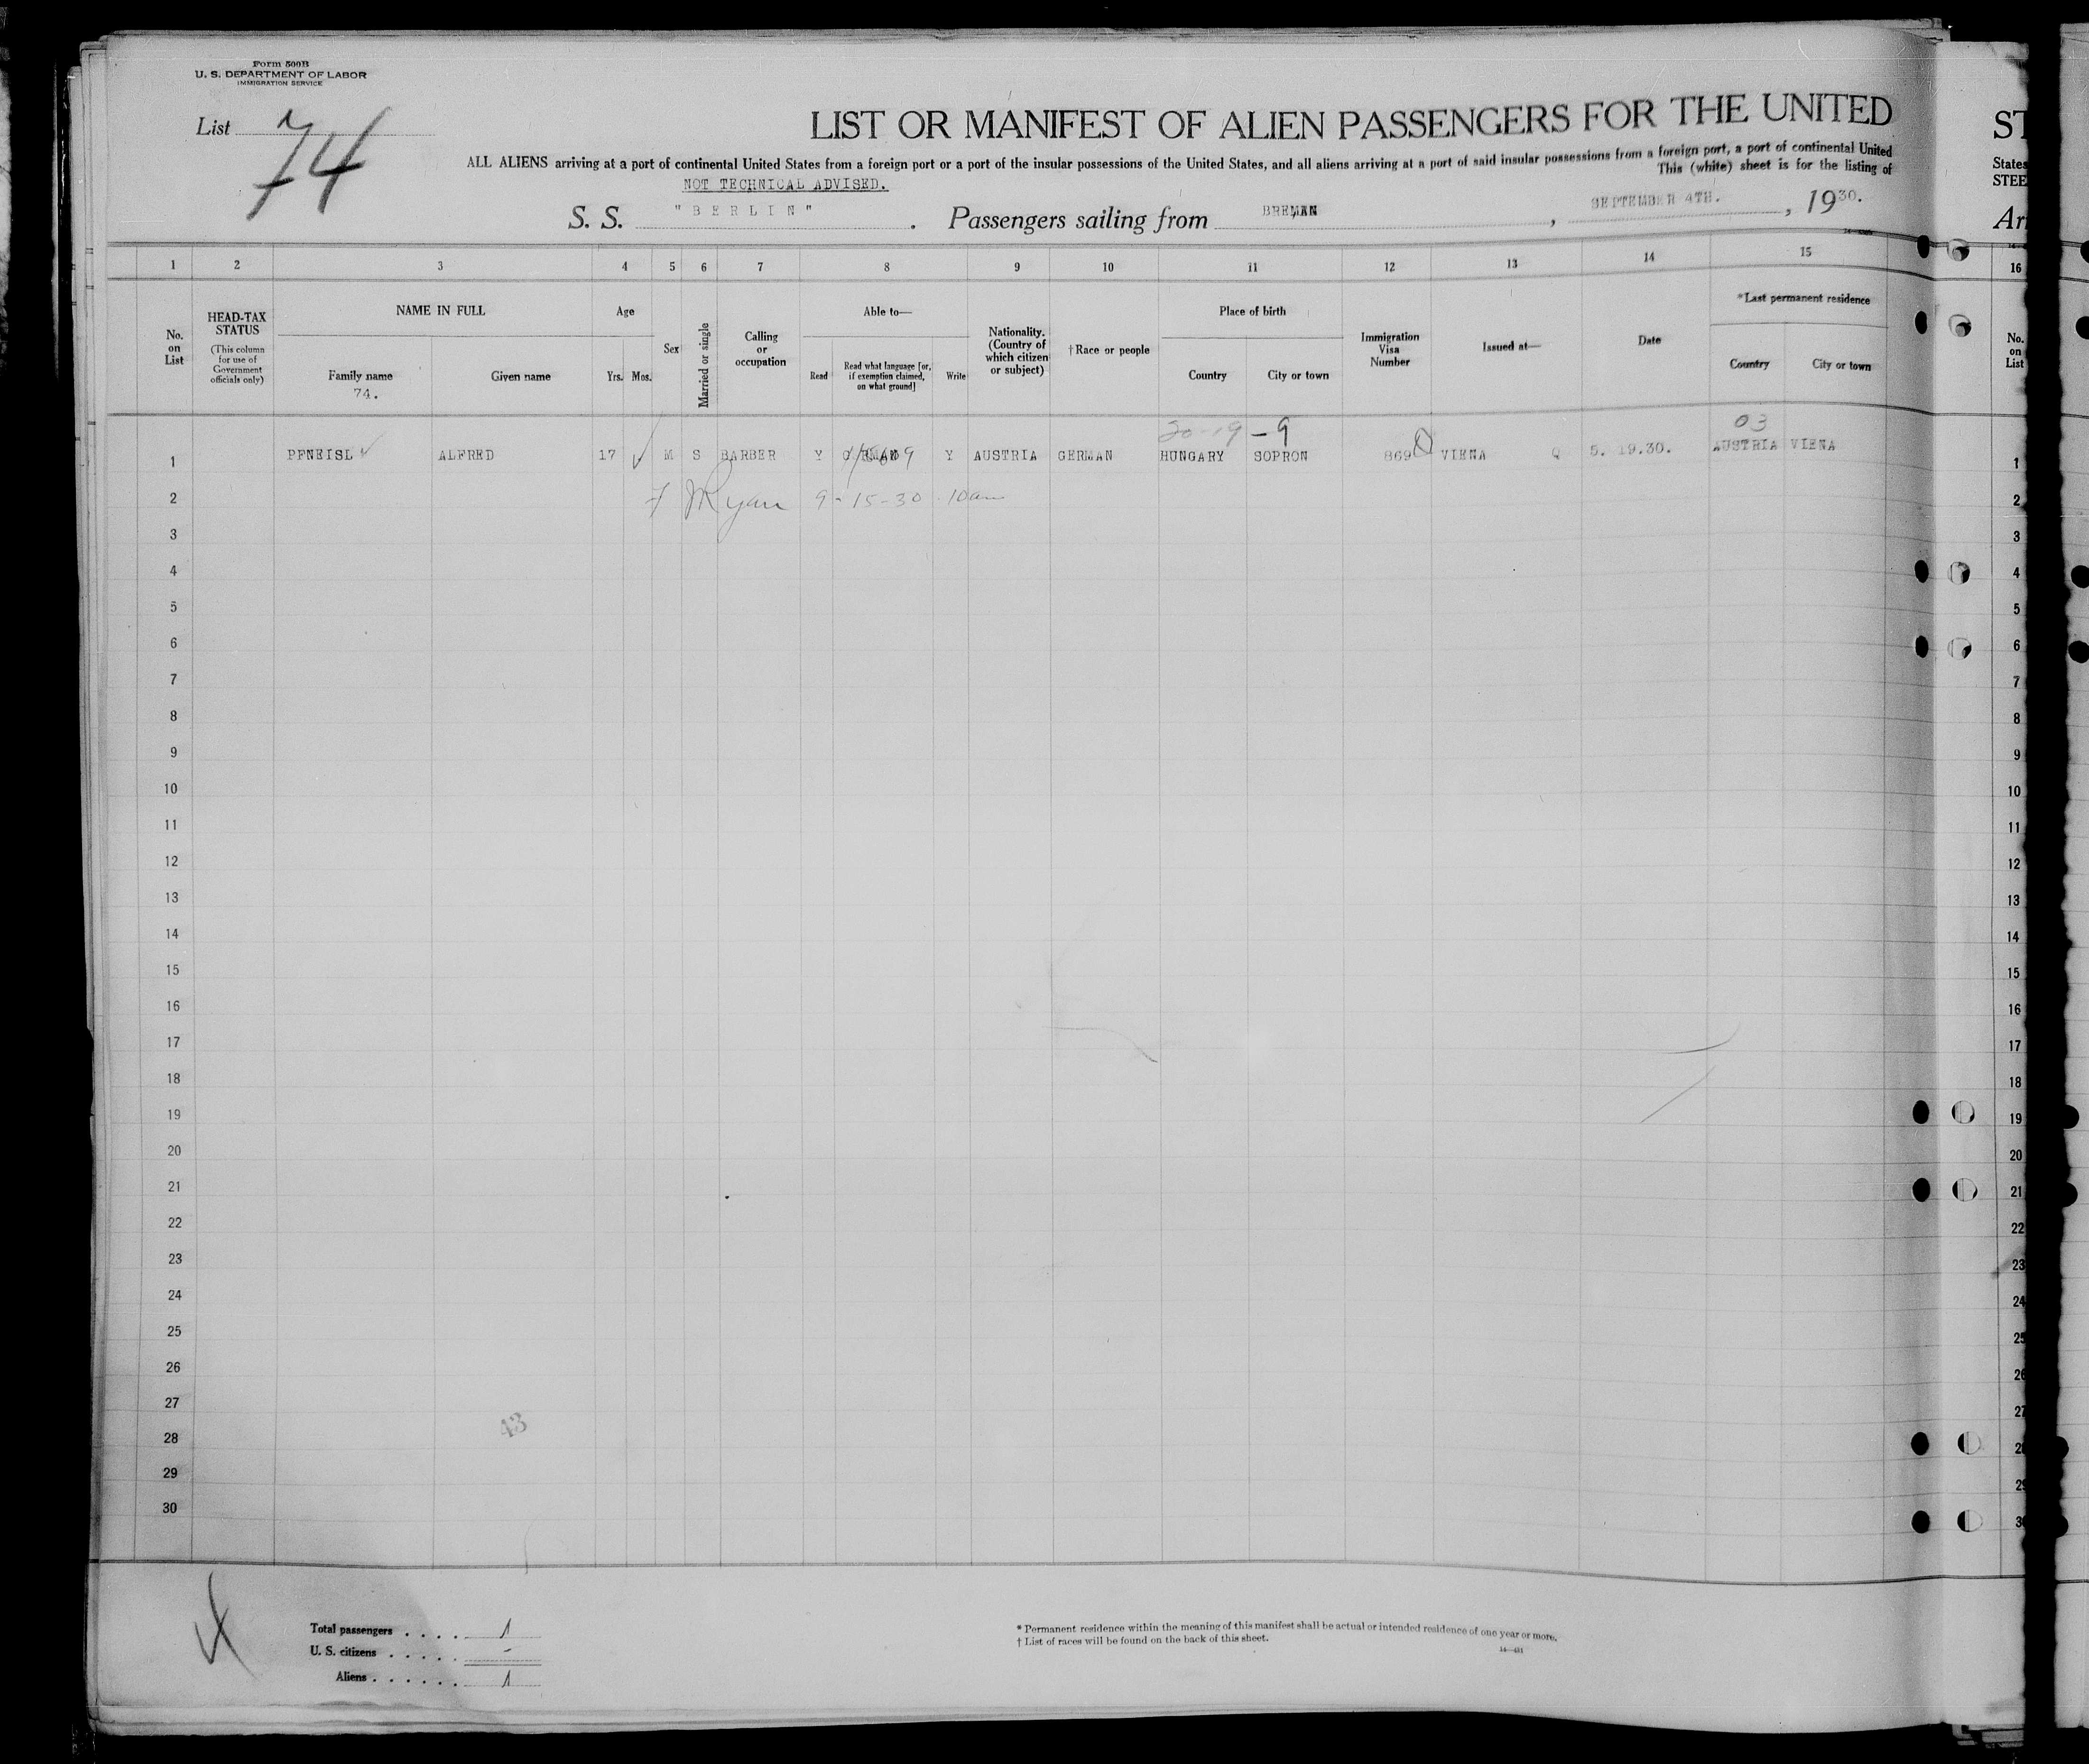 Form 500B
U. S. DEPARTMENT OF LABOR
IMMIGRATION SERVICE
List 74
LIST OR MANIFEST OF ALIEN PASSENGERS FOR THE UNITED
ALL ALIENS arriving at a port of continental United States from a foreign port or a port of the insular possessions of the United States, and all aliens arriving at a port of said insular possessions from a foreign port, a port of continental United
This (white) sheet is for the listing of
NOT TECHNICAL ADVISED.
S. S. "BERLIN" . Passengers sailing from BREMEN , SEPTEMBER 4TH. , 1930.
1 2 3 4 5 6 7 8 9 10 11 12 13 14 15
No. on List
HEAD-TAX STATUS
(This column for use of Government officials only)
NAME IN FULL
Family name
74.
Given name
Age
Yrs. Mos.
Sex
Married or single
Calling or occupation
Able to—
Read
Read what language [or, if exemption claimed, on what ground]
Write
Nationality. (Country of which citizen or subject)
†Race or people
Place of birth
Country
City or town
Immigration Visa Number
Issued at—
Date
*Last permanent residence
Country
City or town
20-19 - 9
03
1 PFNEISL ALFRED 17 M S BARBER Y GERMAN Y AUSTRIA GERMAN HUNGARY SOPRON 869 VIENA Q 5. 19.30. AUSTRIA VIENA
2 Ryan 9-15-30 10am
3
4
5
6
7
8
9
10
11
12
13
14
15
16
17
18
19
20
21
22
23
24
25
26
27
43
28
29
30
Total passengers . . . . . 1
U. S. citizens . . . . . . -
Aliens . . . . . . 1
* Permanent residence within the meaning of this manifest shall be actual or intended residence of one year or more.
† List of races will be found on the back of this sheet.
ST
States
STEE
Ar
16
No. on List
1
2
3
4
5
6
7
8
9
10
11
12
13
14
15
16
17
18
19
20
21
22
23
24
25
26
27
28
29
30